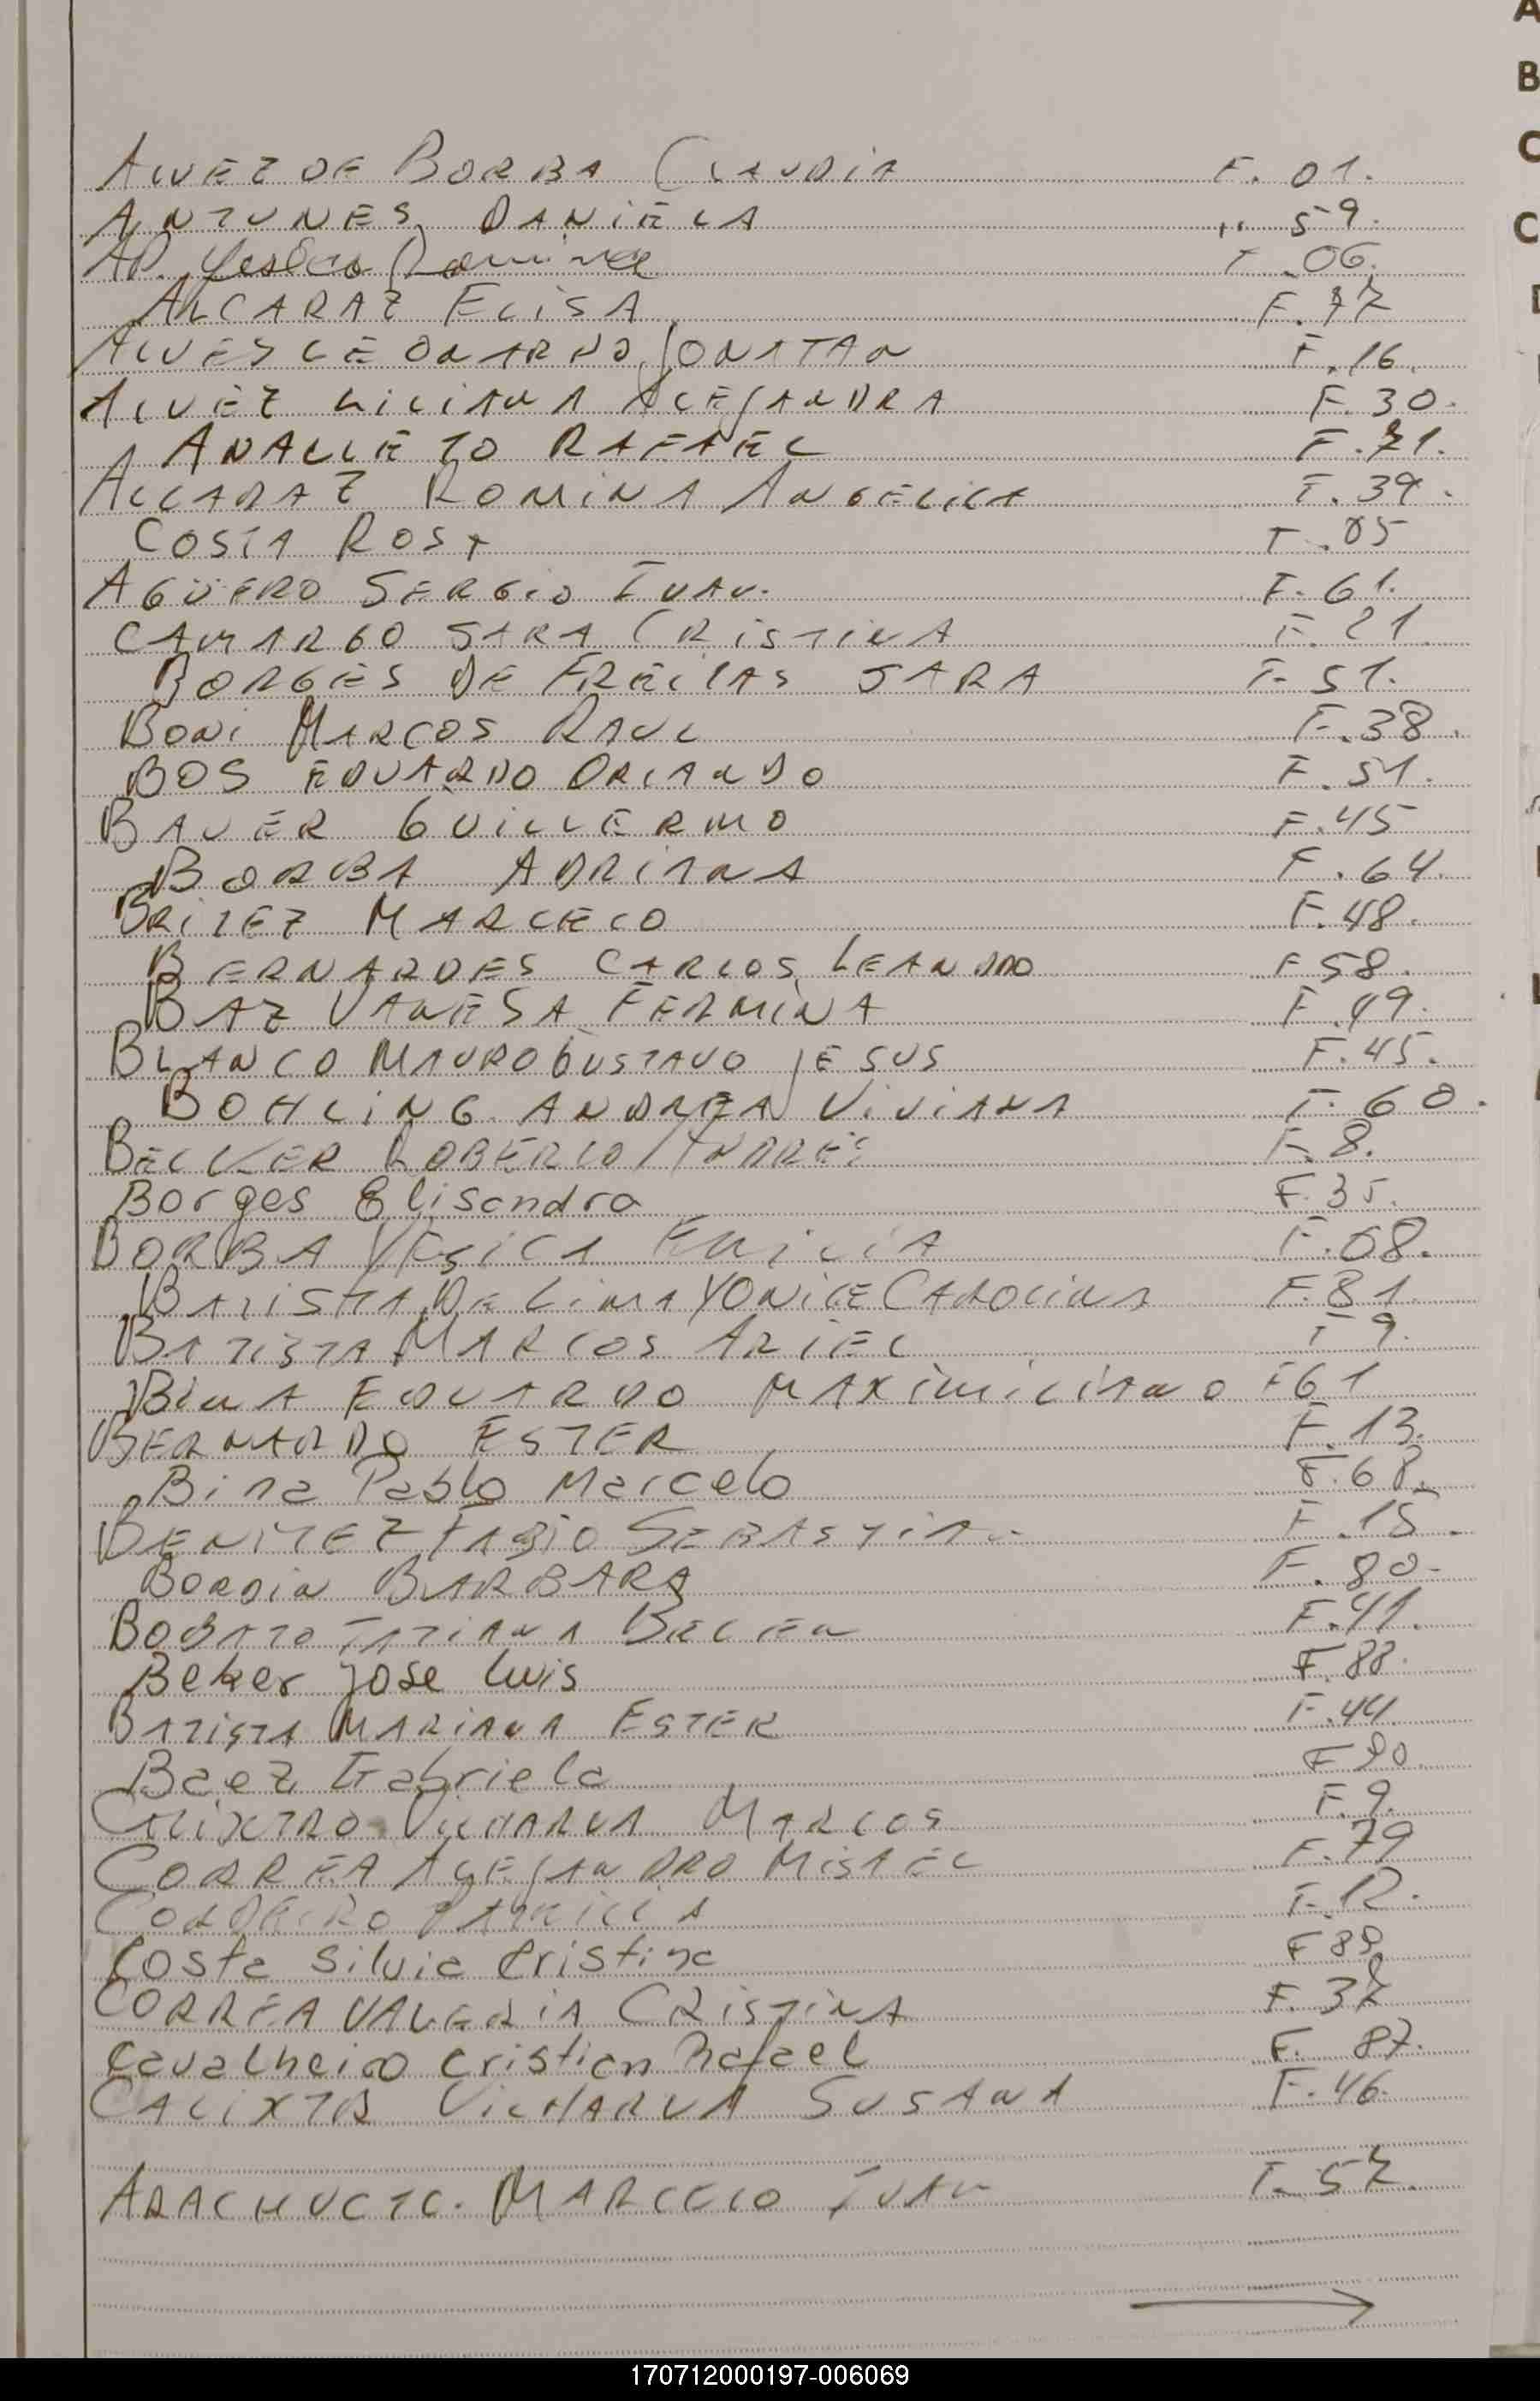 ALVEZ DE BORBA CLAUDIA F. 01.
ANTUNES DANIELA " 59.
F. 06.
ALCARAZ ELISA F. 77
ALVES LEONARDO JONATAN F. 16.
ALVEZ LILIANA ALEJANDRA F. 30.
RAFAEL F. 71.
ALCARAZ ROMINA ANGELICA F. 39.
COSTA ROSA F. 05
AGÜERO SERGIO IVAN. F. 61.
CAMARGO SARA CRISTINA F. 21.
BORGES DE FREITAS SARA F. 51.
BONI MARCOS RAUL F. 38.
BOS EDUARDO ORLANDO F. 51.
BAUER GUILLERMO F. 45
BORBA ADRIANA F. 64.
BRITEZ MARCELO F. 48.
BERNARDES CARLOS LEANDRO F 58.
BAZ VANESA FERMINA F. 49.
BLANCO MAURO GUSTAVO JESUS F. 45.
BOHLING ANDREA VIVIANA F. 60.
BECKER ROBERTO ANDRES F. 8.
Borges Elisandra F. 35.
BORBA YESICA F. 08.
BATISTA DE LIMA YONICE CAROLINA F. 81.
BATISTA MARCOS ARIEL F 9.
BINA EDUARDO MAXIMILIANO F 61
BERNARDO ESTER F. 13.
Bina Pablo Marcelo F. 68.
BENITEZ FABIO SEBASTIAN F. 15.
BORDIN BARBARA F. 80.
BOBATO TATIANA BELEN F. 41.
Beker Jose Luis F. 88.
BATISTA MARIANA ESTER F. 44.
Baez Gabriela F 90.
VILHARVA MARCOS F. 9.
CORREA ALEJANDRO MISAEL F. 79
CORDEIRO PATRICIA F. 12.
Costa Silvia Cristina F 89.
CORREA VALERIA CRISTINA F. 37
Cavalheiro Cristian Rafael F. 87.
CALIXTO VILHARVA SUSANA F. 46.
MARCELO IVAN F. 57.
170712000197-006069